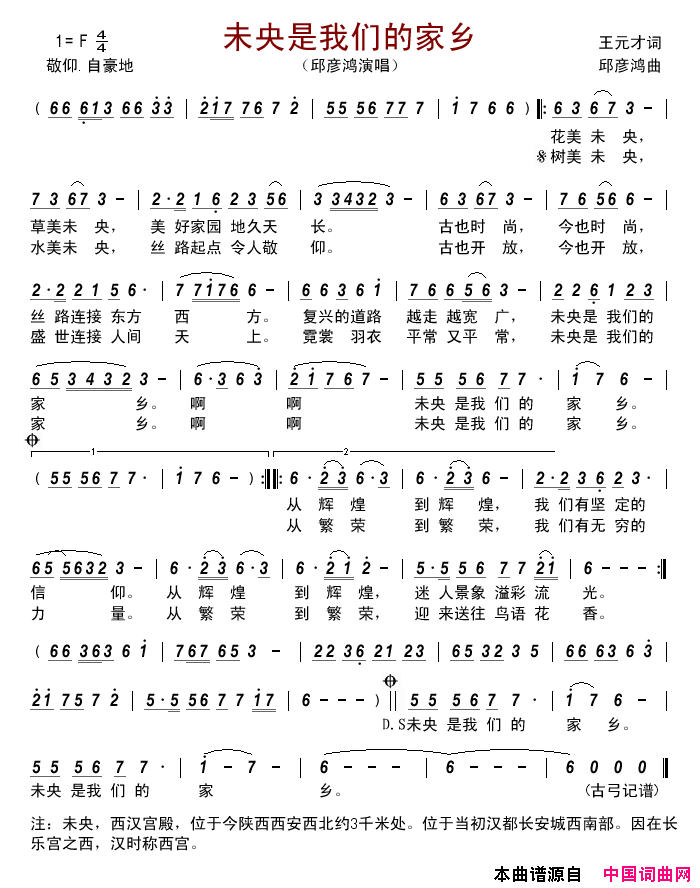 未央是我们的家乡
1= F 4/4
王元才词
敬仰.自豪地
（邱彦鸿演唱）
邱彦鸿曲
( 66 613 66 33 | 217 76 7 2 | 55 56 77 7 - | 1 7 66 ) ‖: 63 67 3 - |
花美 未 央，
𝄋树美 未 央，
7 3 67 3 - | 2·2 1 6 2 3 56 | 3 3432 3 - | 63 67 3 - | 76 56 6 - |
草美未 央， 美 好家园 地久天 长。 古也时 尚， 今也时 尚，
水美未 央， 丝 路起点 令人敬 仰。 古也开 放， 今也开 放，
2·2 21 56· | 7 7176 6 - | 66 36 61 | 76 65 3 - | 2261 23 |
丝 路连接 东方 西 方。 复兴的道路 越走 越宽 广， 未央是 我们的
盛 世连接 人间 天 上。 霓裳 羽衣 平常 又平 常， 未央是 我们的
65 3432 3 - | 6·3 63 | 21 767 - | 55 56 77· | 17 6 - |
家 乡。 啊 啊 未央 是我 们 的 家 乡。
家 乡。 啊 啊 未央 是我 们 的 家 乡。
1 2
( 55 56 77· | 176 - ) :‖: 6·23 6·3 | 6·23 6 - | 2·23 6 23· |
从 辉 煌 到 辉 煌， 我 们有坚 定的
从 繁 荣 到 繁 荣， 我 们有无 穷的
65 5632 3 - | 6·23 6·3 | 6·21 2 - | 5·5 56 77 21 | 6 - - - :‖
信 仰。 从 辉 煌 到 辉 煌， 迷 人景象 溢彩 流 光。
力 量。 从 繁 荣 到 繁 荣， 迎 来送往 鸟语 花 香。
( 66 363 6 1 | 767 65 3 - | 22 36 21 23 | 65 32 35 | 66 63 63 |
21 75 72 | 5·5 56 77 17 | 6 - - - ) ‖ 55 56 77· | 17 6 - |
D.S未央 是我 们 的 家 乡。
55 56 77· | 1 - 7 - | 6 - - - | 6 - - - | 6 0 0 0 ‖
未央 是我 们 的 家 乡。 (古弓记谱)
注：未央，西汉宫殿，位于今陕西西安西北约3千米处。位于当初汉都长安城西南部。因在长
乐宫之西，汉时称西宫。
本曲谱源自 中国词曲网